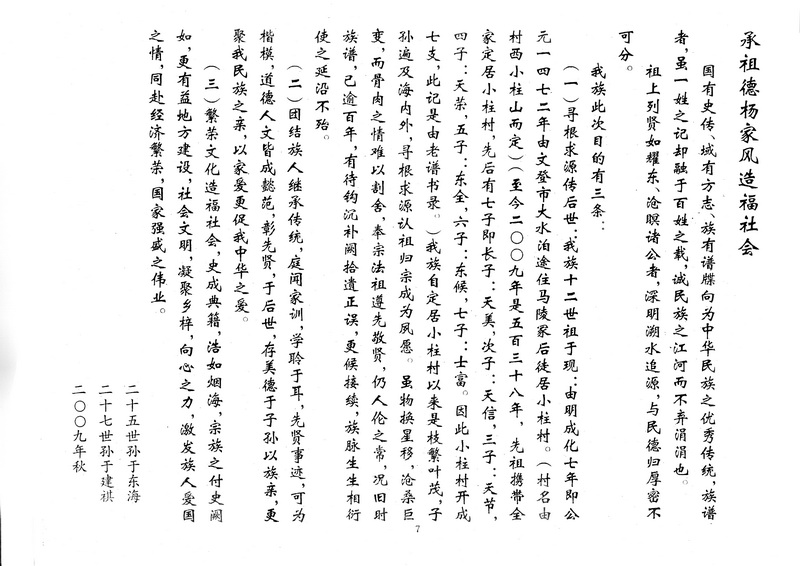 承祖德杨家风造福社会
国有史传、域有方志、族有谱牒向为中华民族之优秀传统，族谱
者，虽一姓之记却融于百姓之载，诚民族之江河而不弃涓涓也。
祖上列贤如耀东、沧暝诸公者，深明溯水追源，与民德归厚密不
可分。
我族此次目的有三条：
（一）寻根求源传后世：我族十二世祖于现：由明成化七年即公
元一四七二年由文登市大水泊途住马陵冢后徒居小柱村。（村名由
村西小柱山而定）（至今二〇〇九年是五百三十八年，先祖携带全
家定居小柱村，先后有七子即长子：天美，次子：天信，三子：天节，
四子：天荣，五子：东全，六子：东候，七子：士富。因此小柱村开成
七支，此记是由老谱书录。）我族自定居小柱村以来是枝繁叶茂，子
孙遍及海内外，寻根求源认祖归宗成为夙愿。虽物换星移，沧桑巨
变，而骨肉之情难以割舍，奉宗法祖遵先敬贤，仍人伦之常，况旧时
族谱，已逾百年，有待钩沉补阙拾遗正误，更候接续，族脉生生相衍
使之延沿不殆。
（二）团结族人继承传统，庭闻家训，学聆于耳，先贤事迹，可为
楷模，道德人文皆成懿范，彰先贤，于后世，存美德于子孙以族亲，更
聚我民族之亲，以家爱更促我中华之爱。
（三）繁荣文化造福社会，史成典籍，浩如烟海，宗族之付史阙
如，更有益地方建设，社会文明，凝聚乡梓，向心之力，激发族人爱国
之情，同赴经济繁荣，国家强盛之伟业。
二十五世孙于东海
二十七世孙于建祺
二〇〇九年秋
7